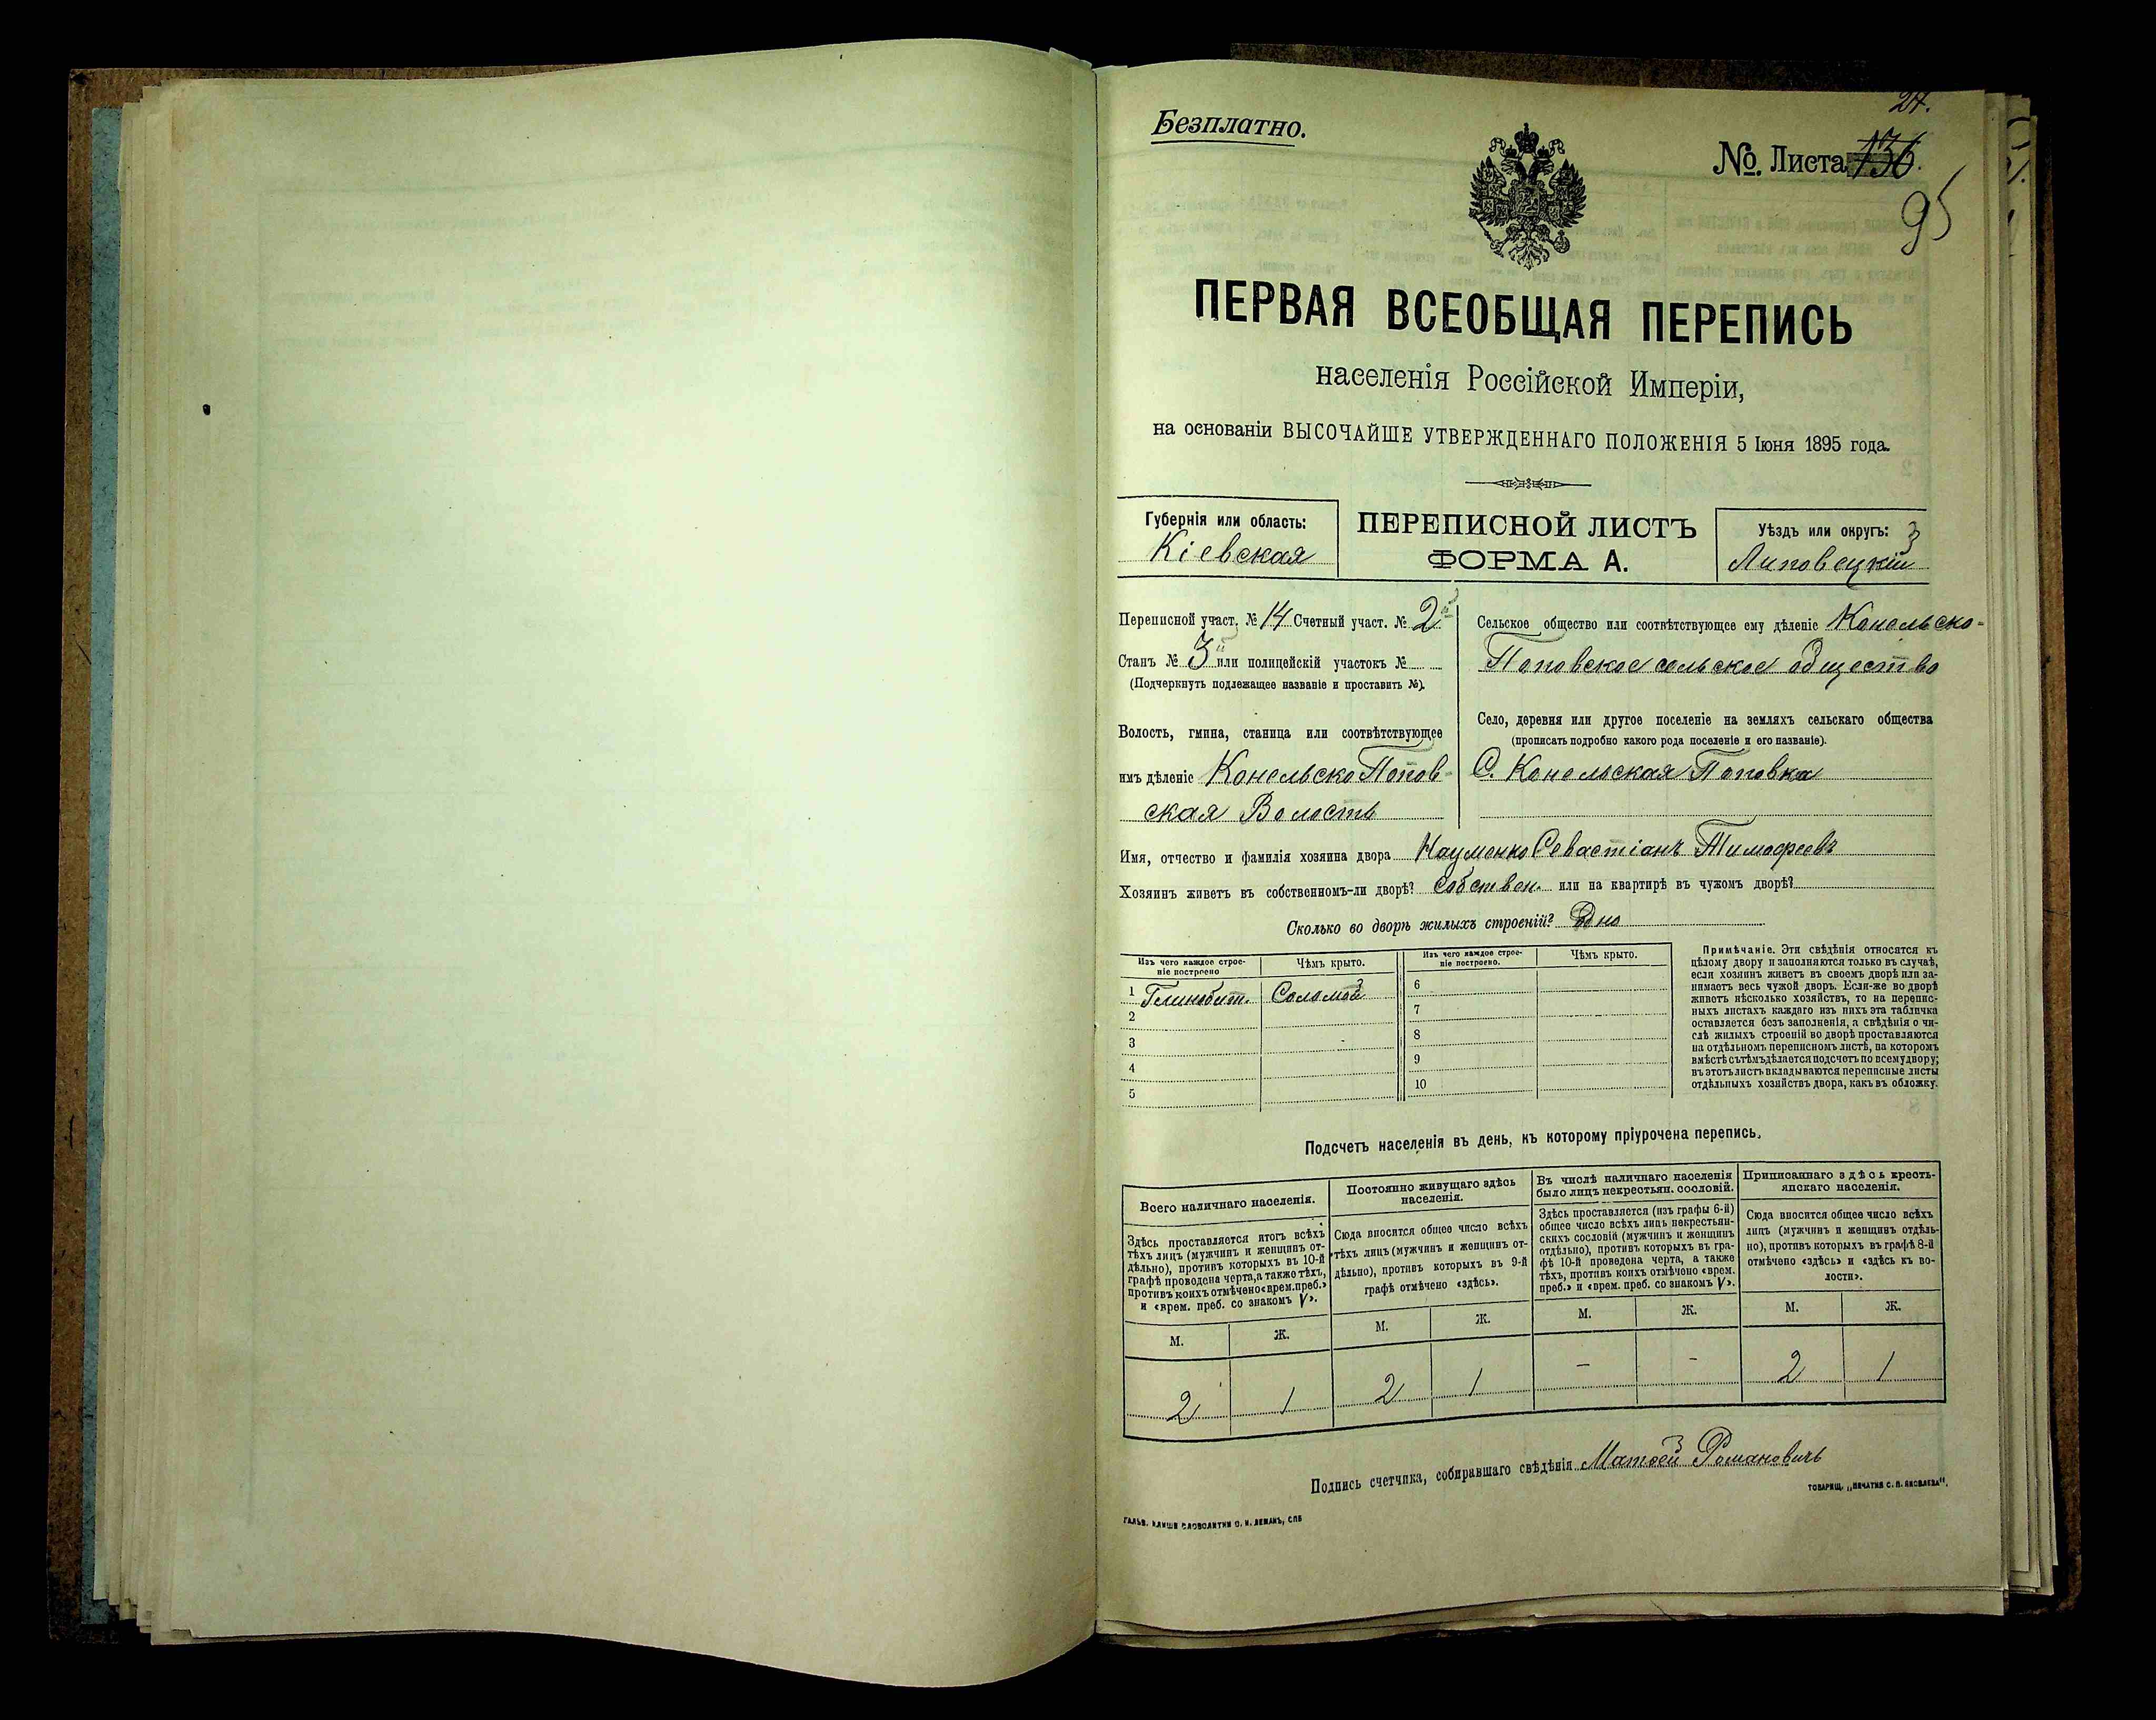 24.
Безплатно.
№. Листа 136.
95
ПЕРВАЯ ВСЕОБЩАЯ ПЕРЕПИСЬ
населенія Россійской Имперіи,
на основаніи ВЫСОЧАЙШЕ УТВЕРЖДЕННАГО ПОЛОЖЕНІЯ 5 Іюня 1895 года.
Губернія или область:
Кіевская
ПЕРЕПИСНОЙ ЛИСТЪ
ФОРМА А.
Уѣздъ или округъ:
Липовецкій
Переписной участ. № 14 Счетный участ. № 2й
Станъ № 3й или полицейскій участокъ №
(Подчеркнуть подлежащее названіе и проставить №).
Волость, гмина, станица или соотвѣтствующее
имъ дѣленіе Конельско Попов-
ская Волость
Сельское общество или соотвѣтствующее ему дѣленіе Конельско-
Поповское сельское общество
Село, деревня или другое поселеніе на земляхъ сельскаго общества
(прописать подробно какого рода поселеніе и его названіе).
С. Конельская Поповка
Имя, отчество и фамилія хозяина двора Науменко Севастіанъ Тимофеевъ
Хозяинъ живетъ въ собственномъ-ли дворѣ? Собствен. или на квартирѣ въ чужомъ дворѣ?
Сколько во дворѣ жилыхъ строеній? Одно
Изъ чего каждое строе-
ніе построено
Чѣмъ крыто.
1 Глинобит. Соломой
2
3
4
5
Изъ чего каждое строе-
ніе построено.
Чѣмъ крыто.
6
7
8
9
10
Примѣчаніе. Эти свѣдѣнія относятся къ
цѣлому двору и заполняются только въ случаѣ,
если хозяинъ живетъ въ своемъ дворѣ или за-
нимаетъ весь чужой дворъ. Если-же во дворѣ
живетъ нѣсколько хозяйствъ, то на перепис-
ныхъ листахъ каждаго изъ нихъ эта табличка
оставляется безъ заполненія, а свѣдѣнія о чи-
слѣ жилыхъ строеній во дворѣ проставляются
на отдѣльномъ переписномъ листѣ, на которомъ
вмѣстѣ съ тѣмъ дѣлается подсчетъ по всему двору;
въ этотъ листъ вкладываются переписные листы
отдѣльныхъ хозяйствъ двора, какъ въ обложку.
Подсчетъ населенія въ день, къ которому пріурочена перепись.
Всего наличнаго населенія.
Здѣсь проставляется итогъ всѣхъ
тѣхъ лицъ (мужчинъ и женщинъ от-
дѣльно), противъ которыхъ въ 10-й
графѣ проведена черта, а также тѣхъ,
противъ коихъ отмѣчено «врем. преб.»
и «врем. преб. со знакомъ V».
М. Ж.
2 1
Постоянно живущаго здѣсь
населенія.
Сюда вносится общее число всѣхъ
тѣхъ лицъ (мужчинъ и женщинъ от-
дѣльно), противъ которыхъ въ 9-й
графѣ отмѣчено «здѣсь».
М. Ж.
2 1
Въ числѣ наличнаго населенія
было лицъ некрестьян. сословій.
Здѣсь проставляется (изъ графы 6-й)
общее число всѣхъ лицъ некрестьян-
скихъ сословій (мужчинъ и женщинъ
отдѣльно), противъ которыхъ въ гра-
фѣ 10-й проведена черта, а также
тѣхъ, противъ коихъ отмѣчено «врем.
преб.» и «врем. преб. со знакомъ V».
М. Ж.
– –
Приписаннаго здѣсь кресть-
янскаго населенія.
Сюда вносится общее число всѣхъ
лицъ (мужчинъ и женщинъ отдѣль-
но), противъ которыхъ въ графѣ 8-й
отмѣчено «здѣсь» и «здѣсь къ во-
лости».
М. Ж.
2 1
Подпись счетчика, собиравшаго свѣдѣнія Матвей Романовичъ
ТОВАРИЩ. „ПЕЧАТНЯ С. П. ЯКОВЛЕВА“.
ГАЛЬВ. КЛИШЕ СЛОВОЛИТНИ О. И. ЛЕМАНЪ, СПБ